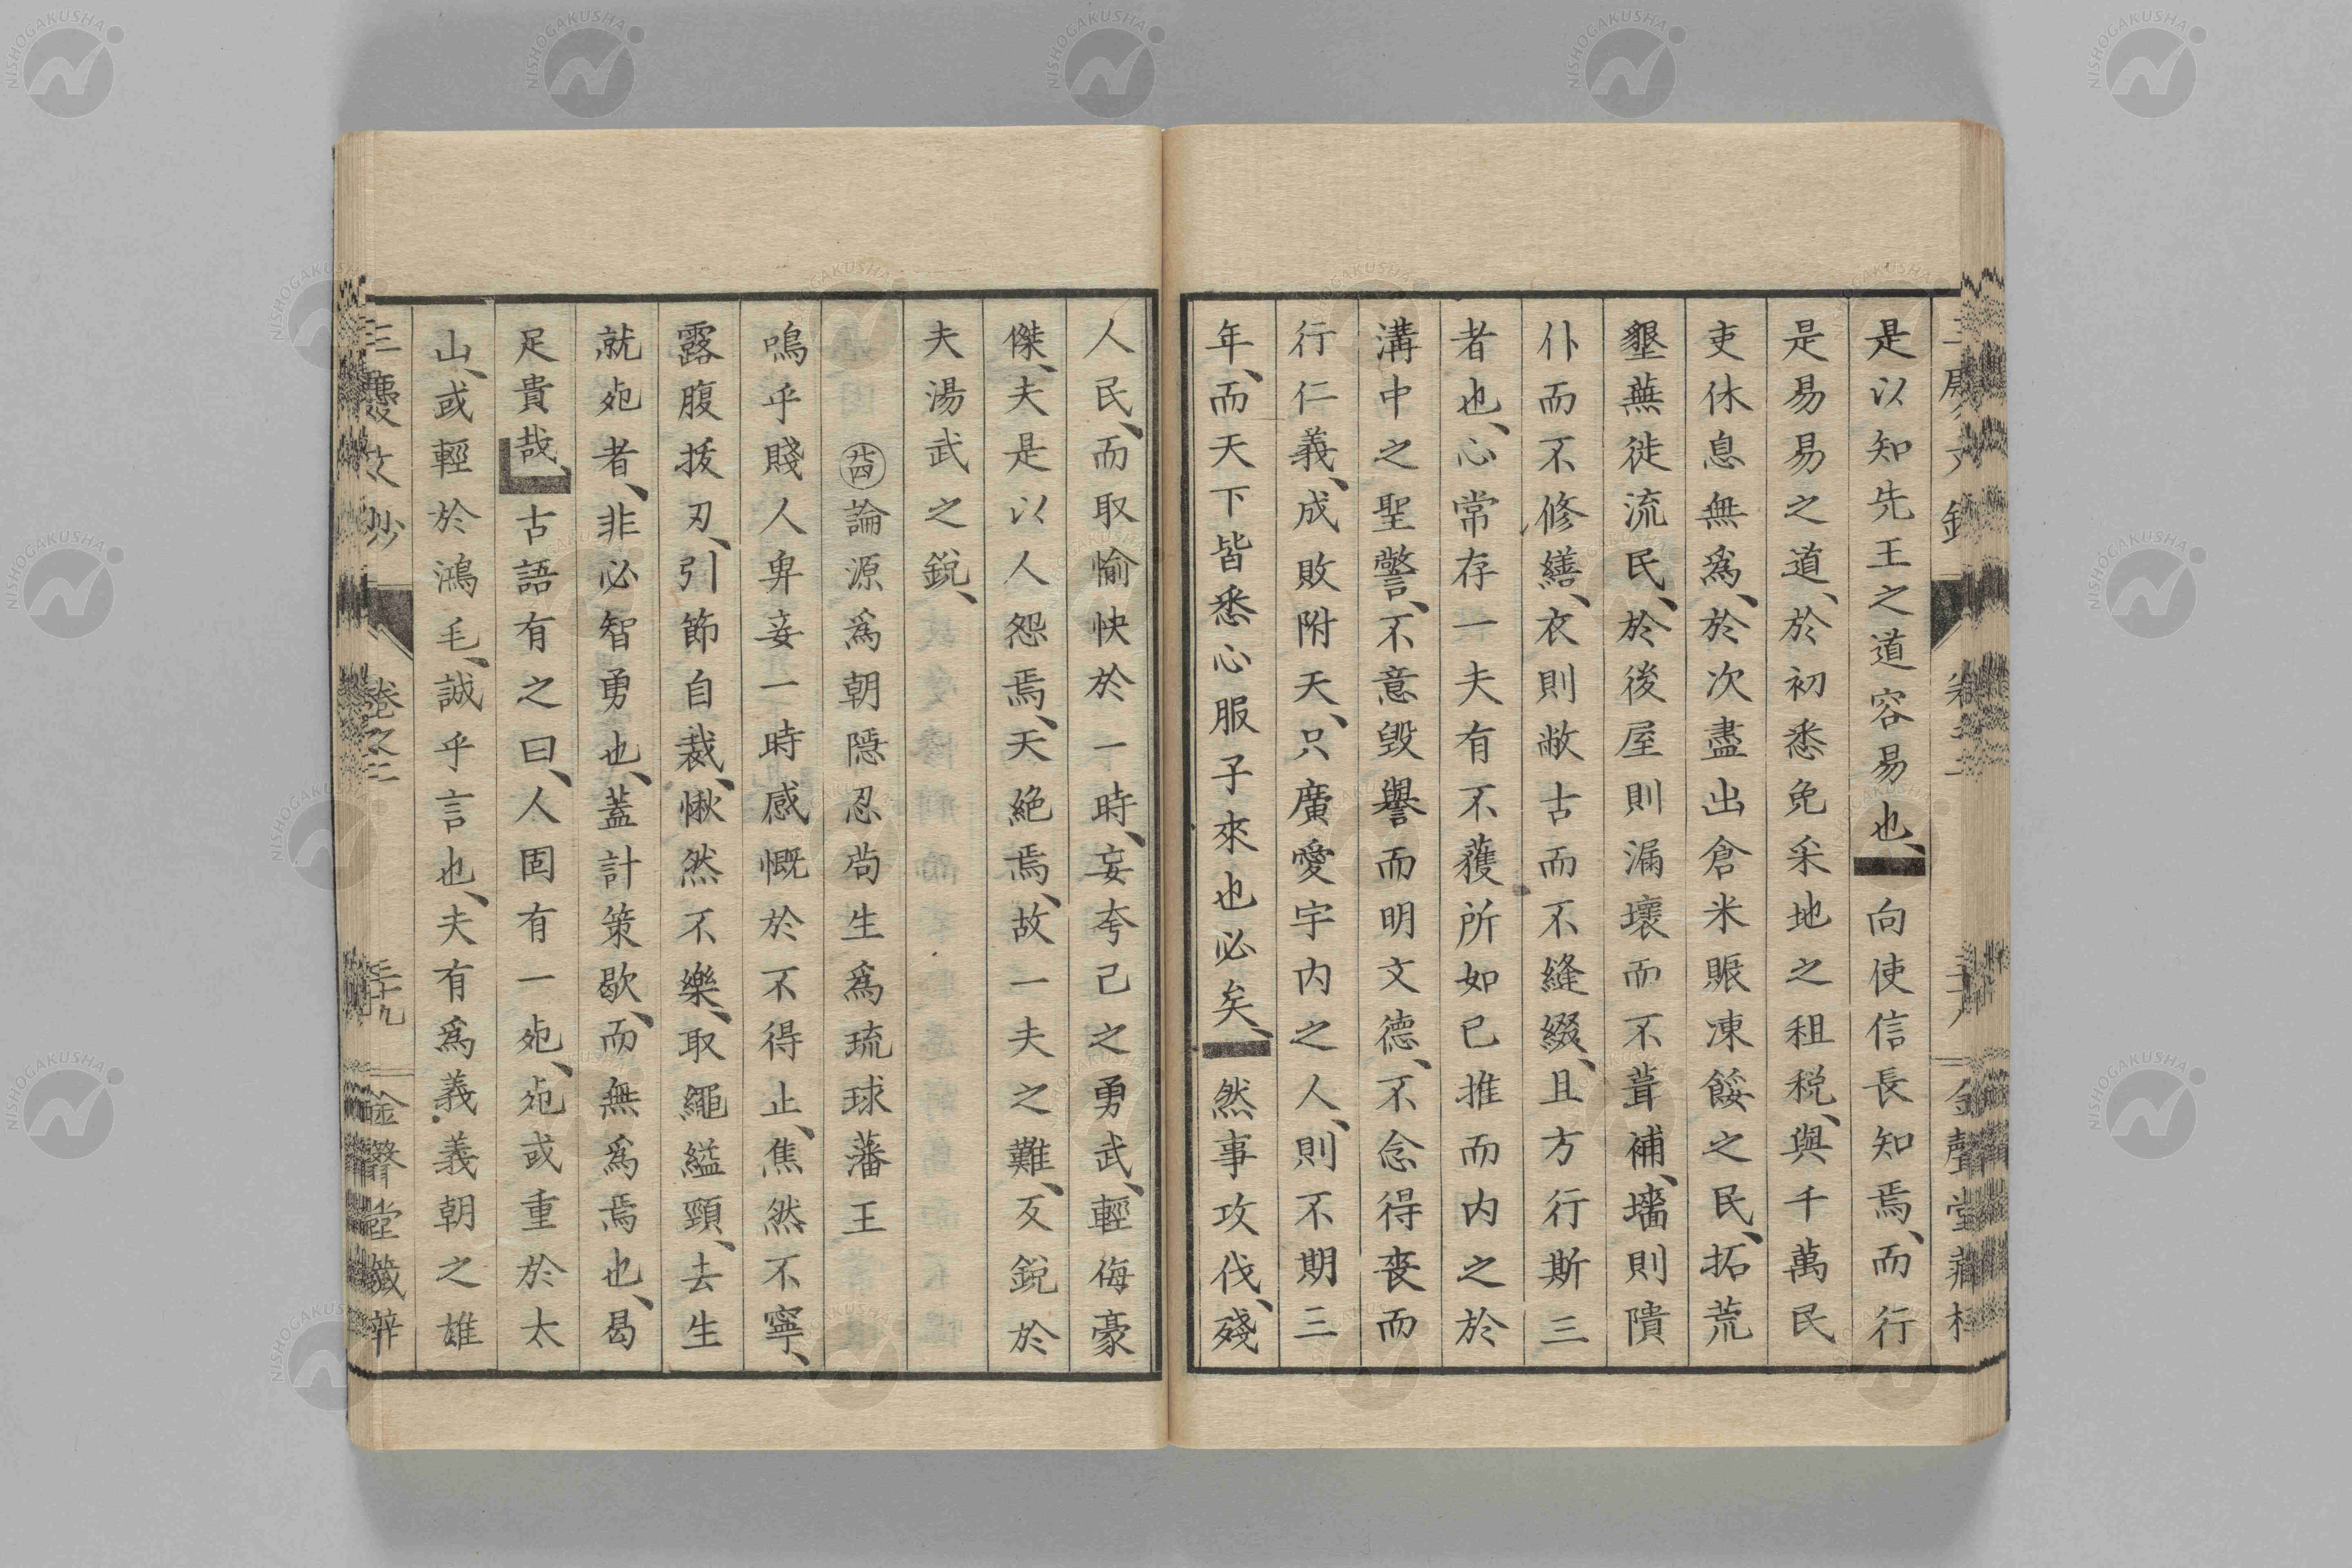 是以知先王之道容易也、向使信長知焉、而行
是易易之道、於初悉免采地之租税、與千萬民
吏休息無爲、於次盡出倉米賑凍餒之民、拓荒
墾蕪徙流民、於後屋則漏壞而不葺補、墻則隤
仆而不修繕、衣則敝古而不縫綴、且方行斯三
者也、心常存一夫有不獲所如已推而内之於
溝中之聖警、不意毀譽而明文德、不念得喪而
行仁義、成敗附天、只廣愛宇内之人、則不期三
年、而天下皆悉心服子來也必矣、然事攻伐、殘
人民、而取愉快於一時、妄夸己之勇武、輕侮豪
傑、夫是以人怨焉、天絶焉、故一夫之難、反鋭於
夫湯武之鋭、
㊃論源爲朝隱忍苟生爲琉球藩王
鳴乎賤人卑妾一時感慨於不得止、焦然不寧、
露腹拔刃、引節自裁、愀然不樂、取繩縊頸、去生
就死者、非必智勇也、蓋計策歇、而無爲焉也、曷
足貴哉、古語有之曰、人固有一死、死或重於太
山、或輕於鴻毛、誠乎言也、夫有爲義義朝之雄
三慶文抄 卷之二 三十九 金聲堂藏梓
NISHOGAKUSHA